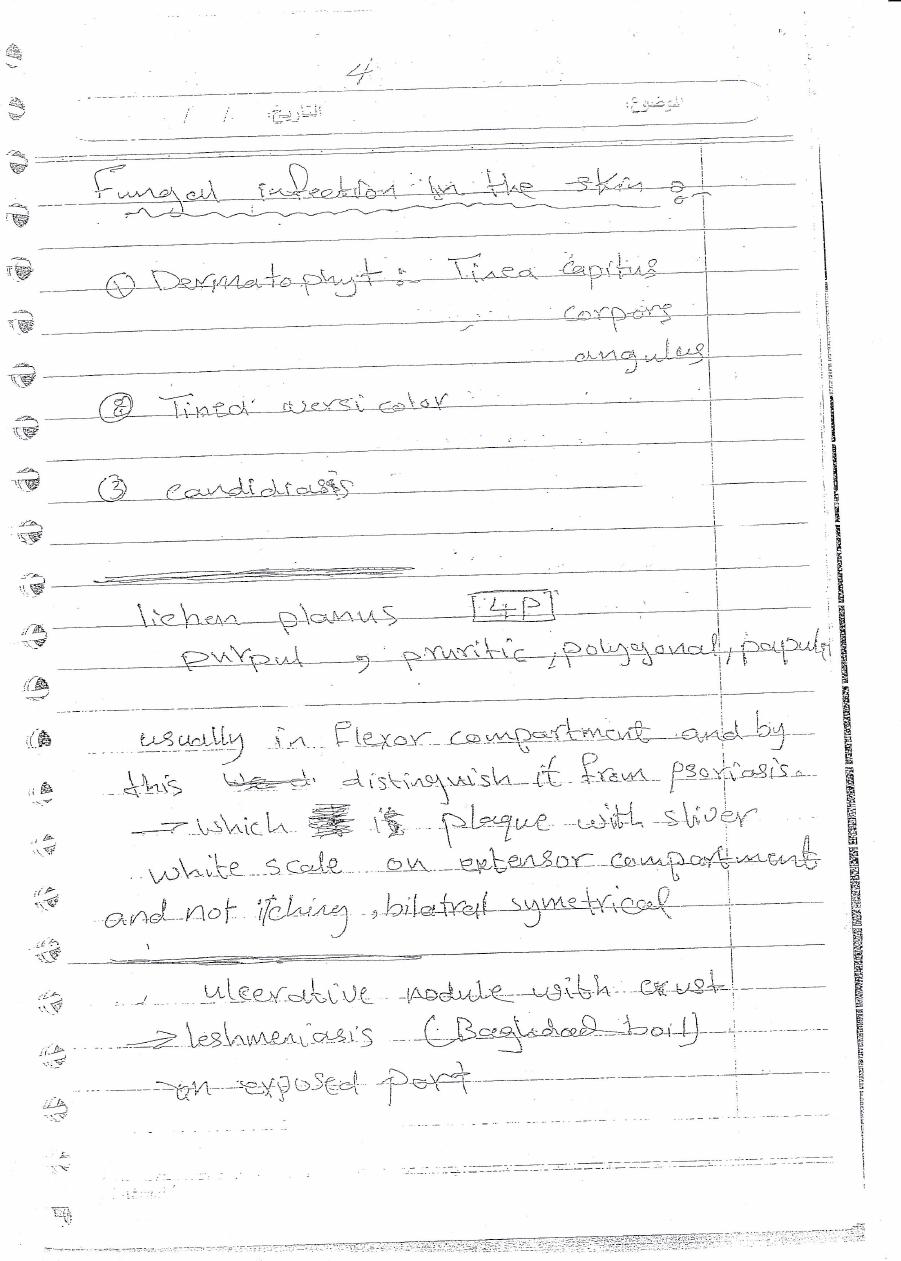 4
الموضوع: التاريخ: / /
Fungal infection in the skin :
① Dermatophyt :- Tinea Capitus
corporis
angulus
② Tinea versi color
③ candidiasis
lichen planus 4P
purpul , pruritic , polygonal , papule
usually in flexor compartment and by
this distinguish it from psoriasis.
→ which is plaque with sliver
white scale on extensor compartment
and not itching , bilatral symetrical
ulcerative nodule with crust
→ leshmeniasis (Baghdad boil)
→ on exposed part